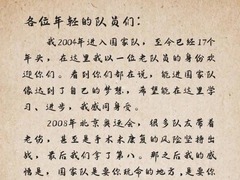 各位年轻的队员们：
我2004年进入国家队，至今已经17个
年头，在这里我以一位老队员的身份欢
迎你们。看到你们都在说，能进国家队
像达到了自己的梦想，希望能在这里学
习、进步，我感同身受。
2008年北京奥运会，很多队友带着
老伤，甚至是手术未康复的风险坚持出
战，最后我们拿了第八。那之后我的感
悟是，国家队是要你玩命的地方，是要你